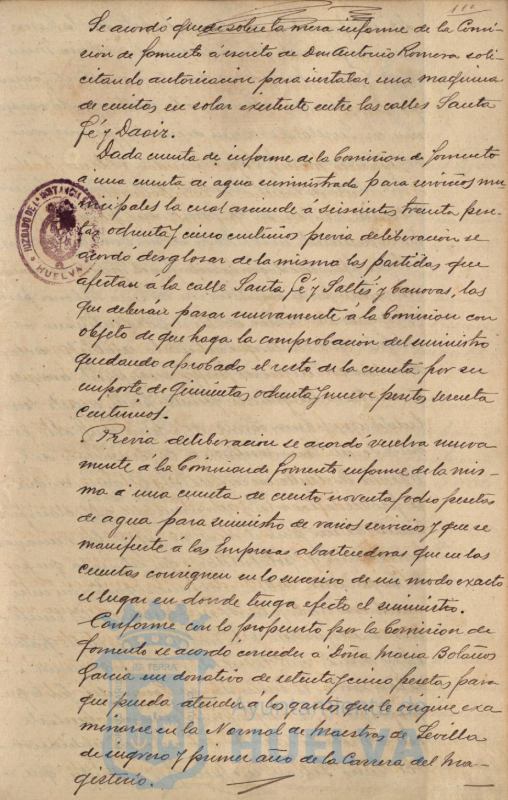 111
Se acordó quede sobre la mesa informe de la Comi-
sion de fomento á escrito de Don Antonio Romero soli-
citando autorizacion para instalar una maquina
de cintos, en solar existente entre las calles Santa
Fé y Daoiz.
Dada cuenta de informe de la Comision de fomento
á una cuenta de agua suministrada para servicios mu-
nicipales la cual asciende á seiscientas treinta pese-
tas ochenta y cinco centimos previa deliberacion se
acordó desglosar de la misma las partidas que
afectan á la calle Santa Fé y Saltés y Canovas, las
que deberán pasar nuevamente á la Comision con
objeto de que haga la comprobacion del suministro
quedando aprobado el resto de la cuenta por su
importe de Quinientas ochenta y nueve pesetas sesenta
centimos.
Previa deliberacion se acordó vuelva nueva-
mente á la Comision de fomento informe de la mis-
ma á una cuenta de ciento noventa y ocho pesetas
de agua para suministro de varios servicios y que se
manifieste á las Empresas abastecedoras que en las
cuentas consignen en lo sucesivo de un modo exacto
el lugar en donde tenga efecto el suministro.
Conforme con lo propuesto por la Comision de
fomento se acordó conceder á Doña Maria Bolaños
Garcia un donativo de setenta y cinco pesetas para
que pueda atender á los gastos que le origine exa-
minarse en la Normal de Maestros de Sevilla
de ingreso y primer año de la Carrera del Ma-
gisterio.
JUZGADO DE 1ª INSTANCIA
HUELVA
Ayuntamiento de
HUELVA